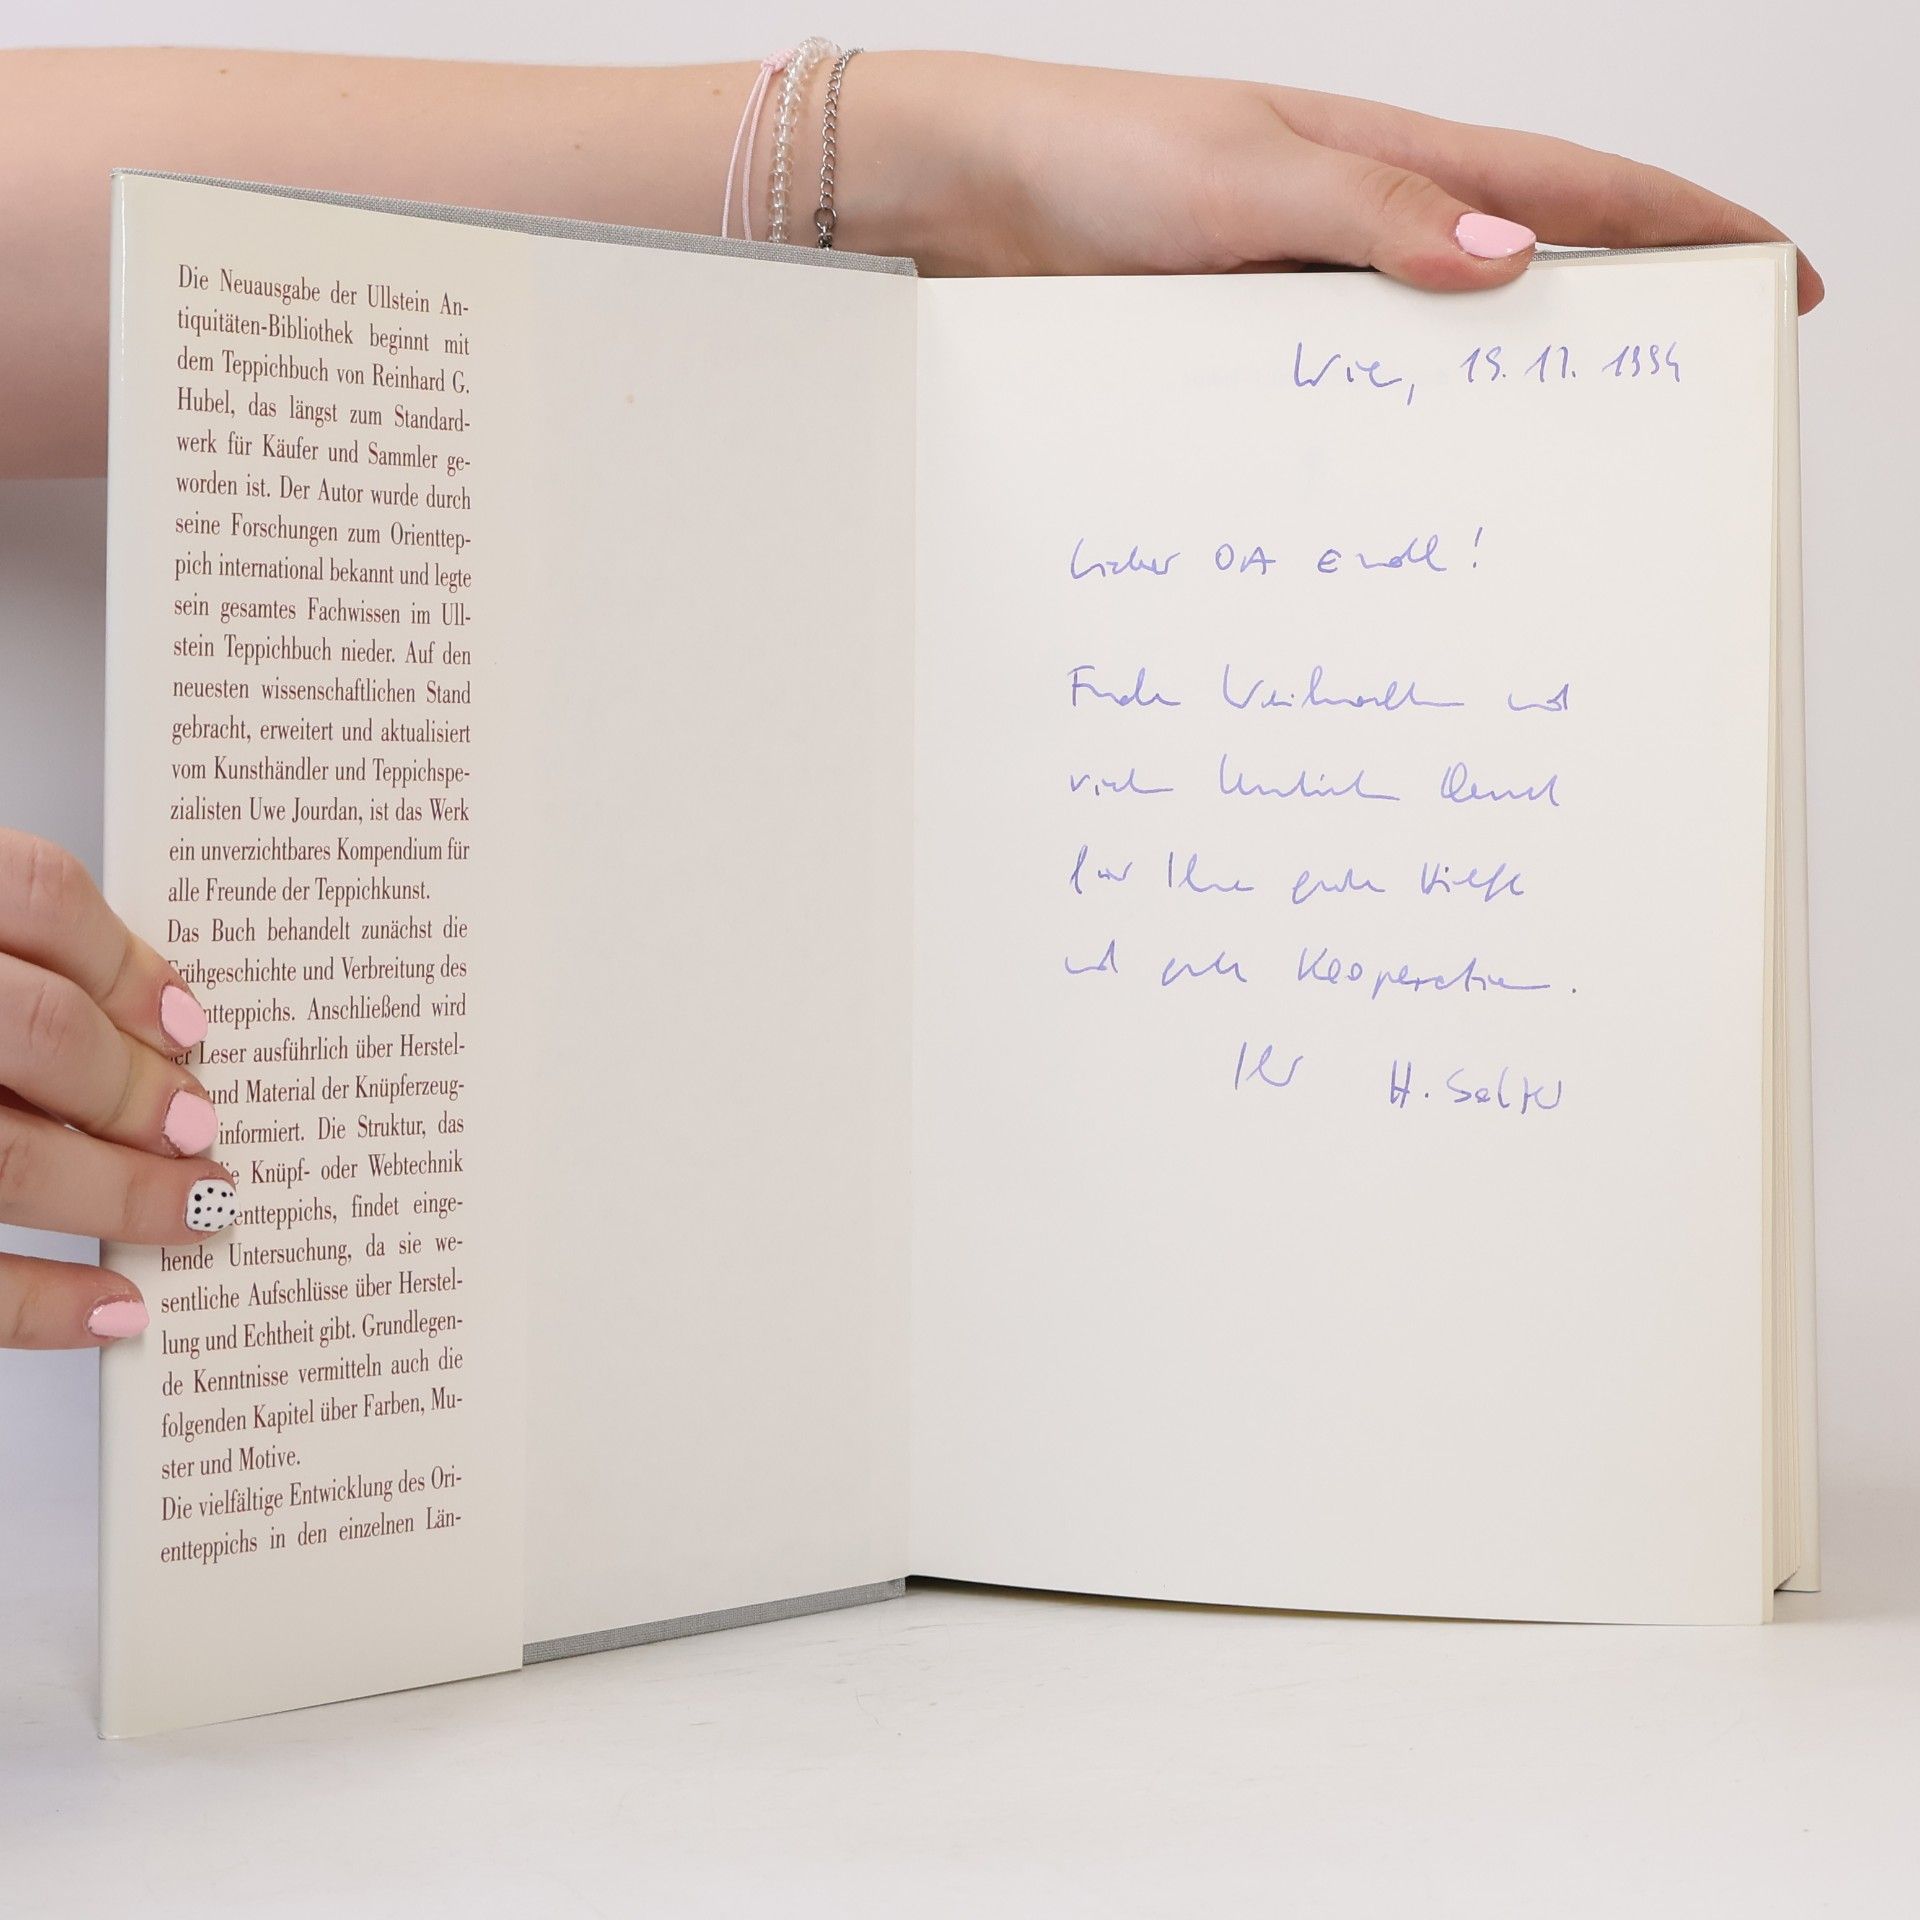 Die Neuausgabe der Ullstein An-
tiquitäten-Bibliothek beginnt mit
dem Teppichbuch von Reinhard G.
Hubel, das längst zum Standard-
werk für Käufer und Sammler ge-
worden ist. Der Autor wurde durch
seine Forschungen zum Orienttep-
pich international bekannt und legte
sein gesamtes Fachwissen im Ull-
stein Teppichbuch nieder. Auf den
neuesten wissenschaftlichen Stand
gebracht, erweitert und aktualisiert
vom Kunsthändler und Teppichspe-
zialisten Uwe Jourdan, ist das Werk
ein unverzichtbares Kompendium für
alle Freunde der Teppichkunst.
Das Buch behandelt zunächst die
Frühgeschichte und Verbreitung des
ntteppichs. Anschließend wird
der Leser ausführlich über Herstel-
und Material der Knüpferzeug-
informiert. Die Struktur, das
die Knüpf- oder Webtechnik
entteppichs, findet einge-
hende Untersuchung, da sie we-
sentliche Aufschlüsse über Herstel-
lung und Echtheit gibt. Grundlegen-
de Kenntnisse vermitteln auch die
folgenden Kapitel über Farben, Mu-
ster und Motive.
Die vielfältige Entwicklung des Ori-
entteppichs in den einzelnen Län-
Wien, 1994
Lieber OA !
Frohe Weihnachten und
vielen herzlichen Dank
für Ihre gute Hilfe
und gute Kooperation.
Ihr H.